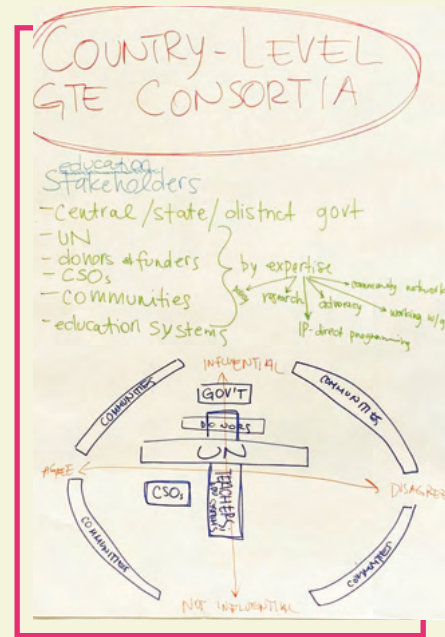 COUNTRY-LEVEL
GTE CONSORTIA
education
Stakeholders
- Central/state/district govt
- UN
- donors & funders
- CSOs
- Communities
- education systems
by expertise
research
advocacy
community network
working w/g
IP-direct programming
INFLUENTIAL
GOV'T
DONORS
UN
TEACHERS
CSOs
AGREE
DISAGREE
NOT INFLUENTIAL
COMMUNITIES
COMMUNITIES
COMMUNITIES
COMMUNITIES